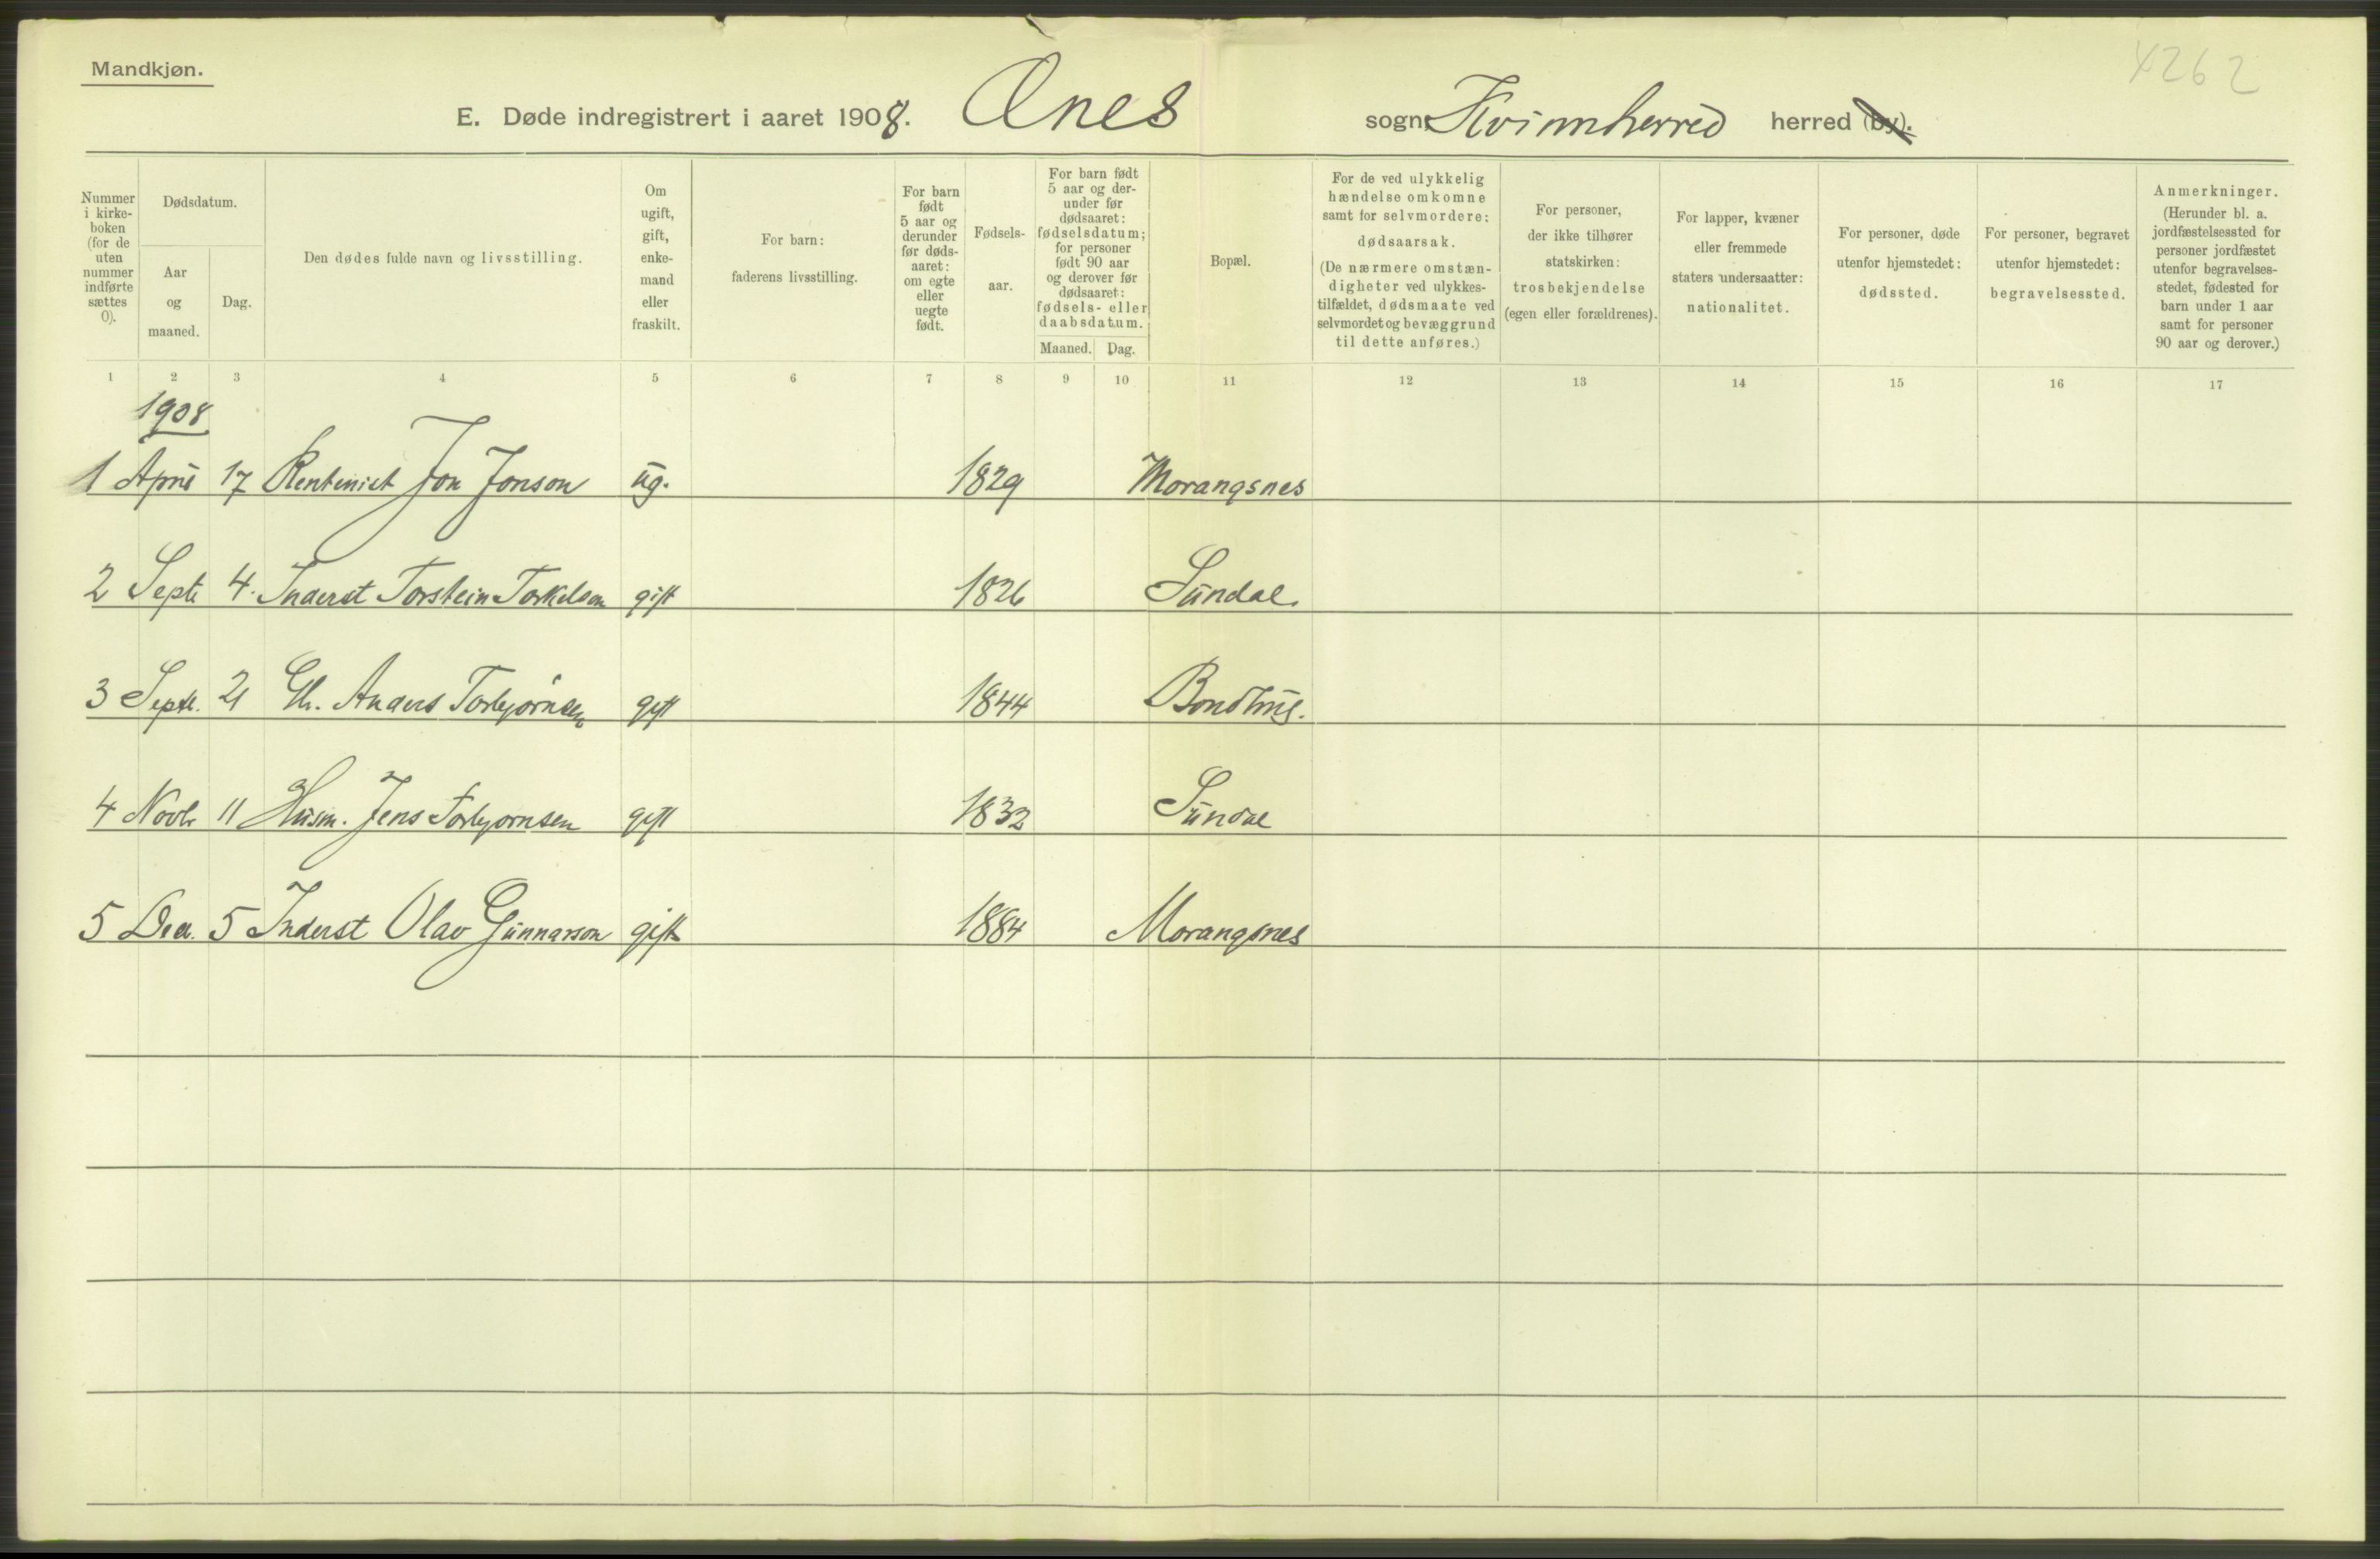 Mandkjøn.
4262
E. Døde indregistrert i aaret 1908. Ænes sogn, Kvinnherred herred (by).
Nummer i kirke-boken (for de uten nummer indførte sættes 0).
Dødsdatum.
Aar og maaned.
Dag.
Den dødes fulde navn og livsstilling.
Om ugift, gift, enke-mand eller fraskilt.
For barn: faderens livsstilling.
For barn født 5 aar og derunder før døds-aaret: om egte eller uegte født.
Fødsels-aar.
For barn født 5 aar og der-under før dødsaaret: fødselsdatum; for personer født 90 aar og derover før dødsaaret: fødsels- eller daabsdatum.
Maaned. Dag.
Bopæl.
For de ved ulykkelig hændelse omkomne samt for selvmordere: dødsaarsak. (De nærmere omstæn-digheter ved ulykkes-tilfældet, dødsmaate ved selvmordet og bevæggrund til dette anføres.)
For personer, der ikke tilhører statskirken: trosbekjendelse (egen eller forældrenes).
For lapper, kvæner eller fremmede staters undersaatter: nationalitet.
For personer, døde utenfor hjemstedet: dødssted.
For personer, begravet utenfor hjemstedet: begravelsessted.
Anmerkninger. (Herunder bl. a. jordfæstelsessted for personer jordfæstet utenfor begravelses-stedet, fødested for barn under 1 aar samt for personer 90 aar og derover.)
1 2 3 4 5 6 7 8 9 10 11 12 13 14 15 16 17
1908
1 April 17 Rentenist Jon Jonson ug. 1829 Morangsnes
2 Septr 4. Inderst Torstein Torkelson gift 1826 Sundal
3 Septr. 21 Gbr. Anders Torbjørnsen gift 1844 Bondhus.
4 Novbr 11 Husm. Jens Torbjørnsen gift 1832 Sundal
5 Decr. 5 Inderst Olav Gunnarson gift 1884 Morangsnes